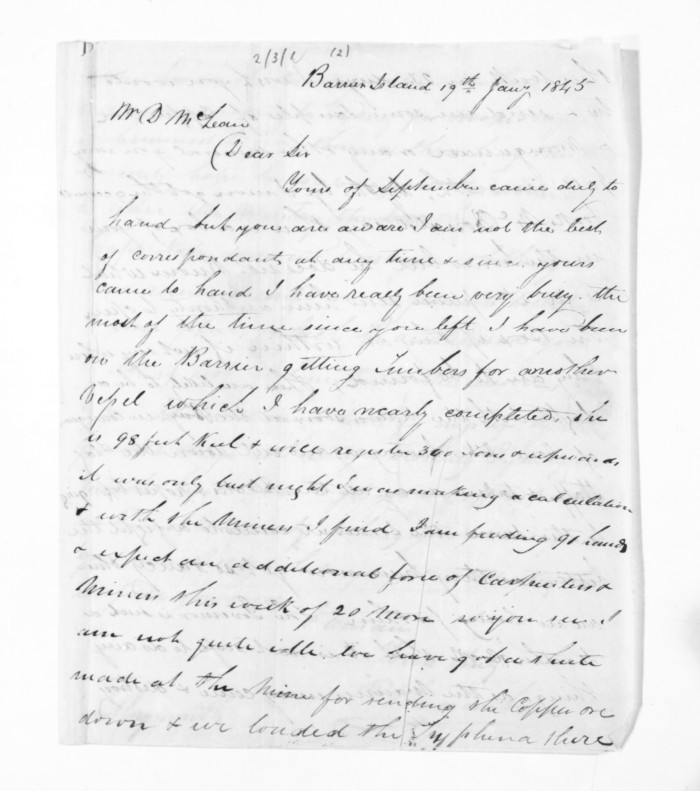 2/3/1 (2)
Barrier Island 19th Jany 1845
Mr D McLean
Dear Sir
Yours of September came duly to
hand, but you are aware I am not the best
of correspondants at any time & since yours
came to hand I have really been very busy. the
most of the time since you left I have been
on the Barrier getting Timbers for another
Vessel which I have nearly completed, she
is 98 feet Keel & will register 300 Tons & upwards
it was only last night I was making a calculation
& with the Miners I find I am feeding 90 hands
& expect an additional force of Carpenters &
Miners this week of 20 More so you see I
am not quite idle. We have got a shute
made at the Mine for sending the Copper ore
down & we loaded the Tryphena there